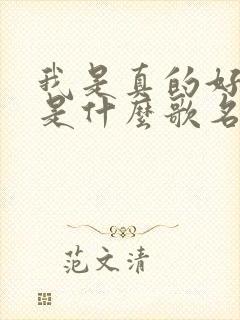 我是真的好
是什麼歌名
范文清